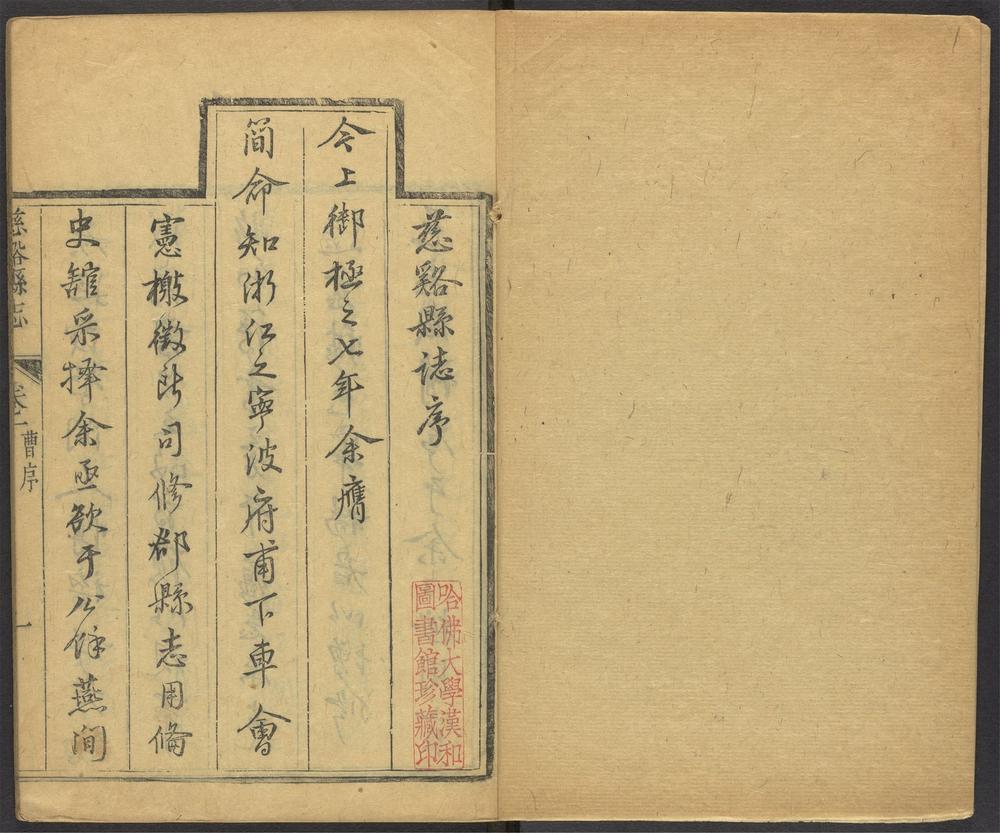 慈谿縣誌序
今上御極之七年余膺
簡命知浙江之寧波府甫下車會
憲檄徵所司修郡縣志用備
史館采擇余亟欲于公餘燕閒
慈谿縣志
卷一
曹序
一
哈佛大學漢和
圖書館珍藏印
1